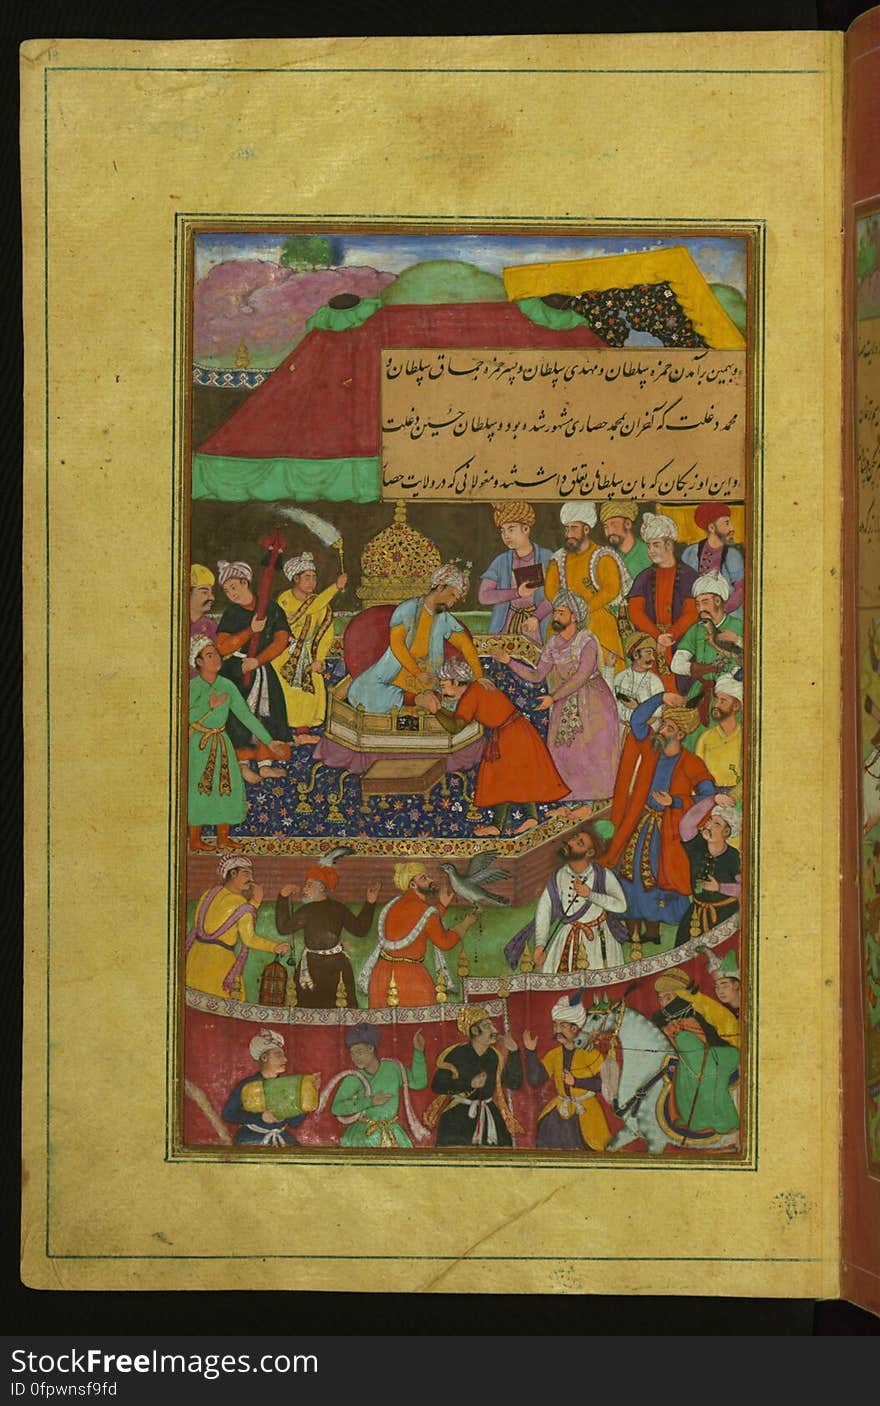 و همین برآمدن حمزه سلطان و مهدی سلطان و پسر حمزه حماق سلطان و
محمد دغلت که آخران بمجد حصاری مشهور شده بود و سلطان حسین دغلت
و این اوزبکان که باین سلطانان تعلق داشتند و مغولانی که در ولایت حصا
StockFreeImages.com
ID 0fpwnsf9fd